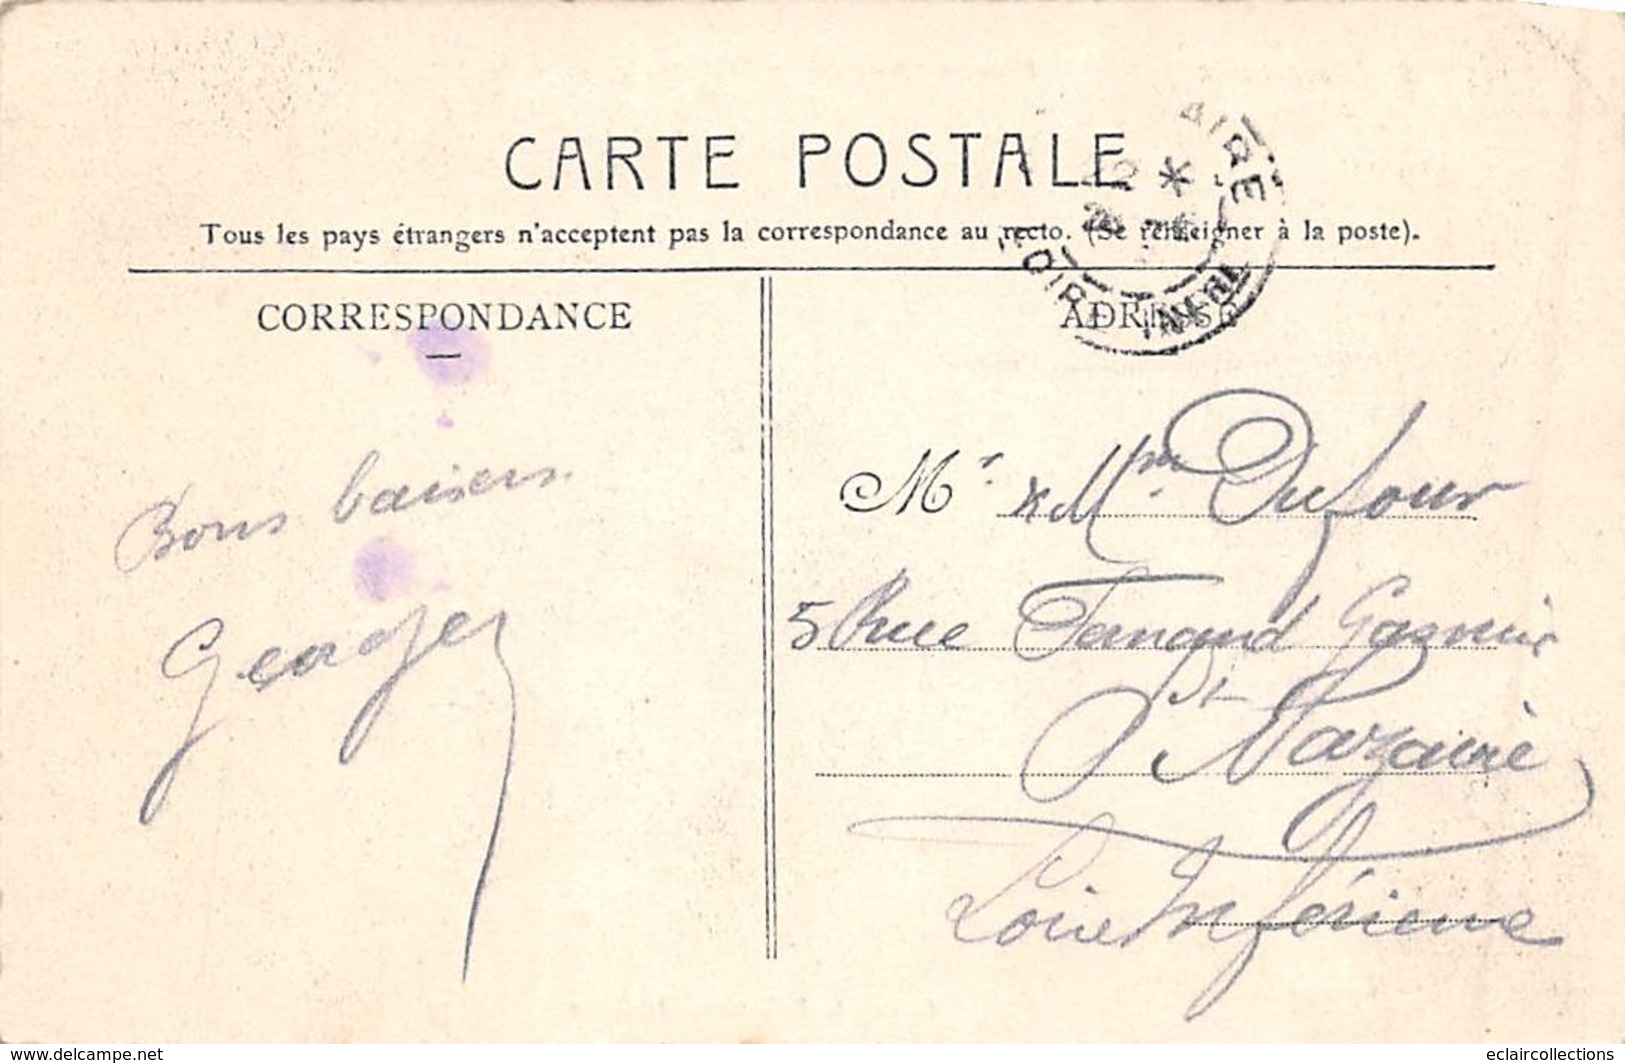 CARTE POSTALE
Tous les pays étrangers n'acceptent pas la correspondance au recto. (Se renseigner à la poste).
CORRESPONDANCE
ADRESSE
AIRE
LOIRE INFRE
Bons baisers
Georges
Mr & Mme Dufour
5 Rue Fernand Gasnier
St Nazaire
Loire Inférieure
www.delcampe.net
eclaircollections